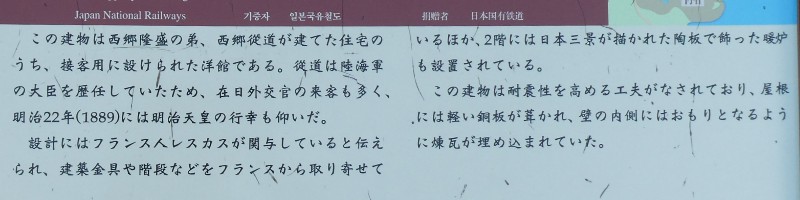 Japan National Railways 기증자 일본국유철도 捐赠者 日本国有鉄道
この建物は西郷隆盛の弟、西郷従道が建てた住宅の
うち、接客用に設けられた洋館である。従道は陸海軍
の大臣を歴任していたため、在日外交官の来客も多く、
明治22年(1889)には明治天皇の行幸も仰いだ。
設計にはフランス人レスカスが関与していると伝え
られ、建築金具や階段などをフランスから取り寄せて
いるほか、2階には日本三景が描かれた陶板で飾った暖炉
も設置されている。
この建物は耐震性を高める工夫がなされており、屋根
には軽い銅板が葺かれ、壁の内側にはおもりとなるよう
に煉瓦が埋め込まれていた。